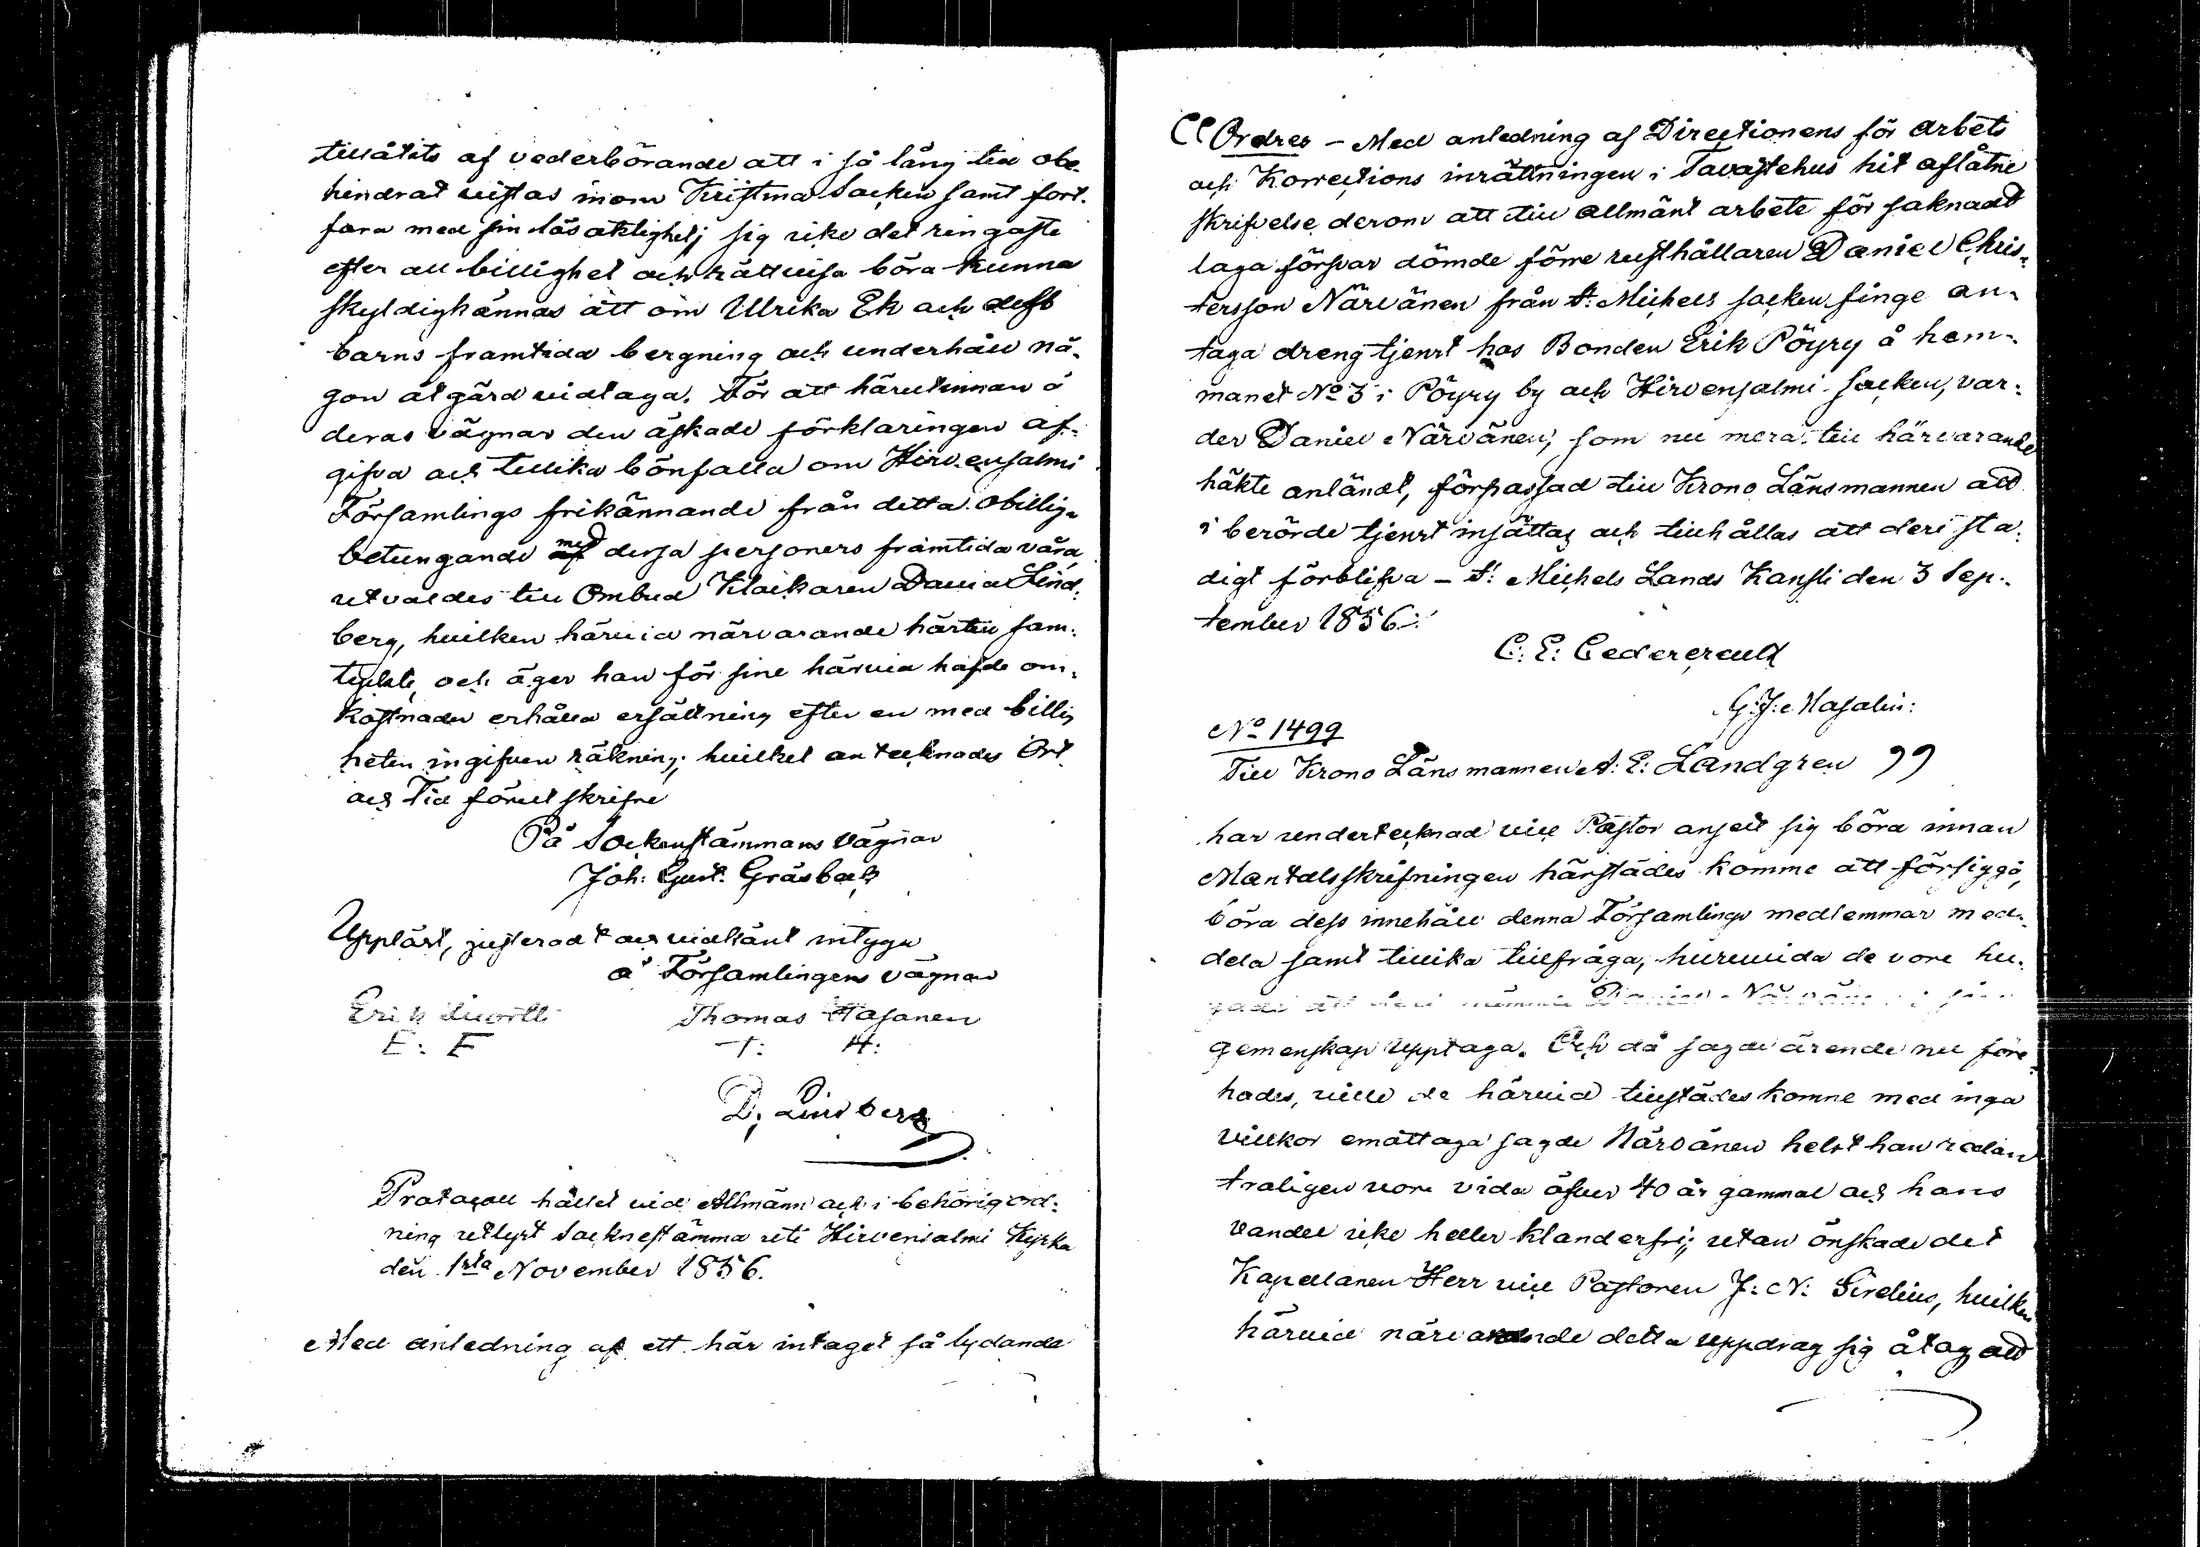 tillåtits af vederbörande att i så lång tid obe-
hindrat vistas inom Kristina Socken samt fort-
fara med sin lösaktighet; sig icke det ringaste
efter all billighet och rättvisa böra kunna
skyldigkännas att om Ulrika Ek och dess
barns framtida bergning och underhåll nå-
gon åtgärd vidtaga. För att härutinnan å
deras vägnar den äskade förklaringen af-
gifva och tillika bönfalla om Hirvensalmi
Församlings frikännande från detta obillig-
betungande med dessa personers framtida vård
utvaldes till Ombud Klockaren David Lind-
berg, hvilken härvid närvarande härtill sam-
tyckte, och äger han för sine härvid hafde om-
kostnader erhålla ersättning efter en med billig
heten ingifven räkning; hvilket antecknades Ort
och Tid förutskrifne
På Sockenstämmans vägnar
Joh: Gust. Gråsbeck
Uppläst, justerad och vidkänt intyga
å Församlingens vägnar
Erik Thomas Hasanen
E: F T: H:
D. Lindberg
Protocoll hållet vid Allmänn och i behörig ord-
ning utlyst Socknestämma uti Hirvensalmi Kyrka
den 1sta November 1856.
Med anledning af ett här intaget så lydande
CC Ordres - Med anledning af Directionens för arbets
och Korrections inrättningen i Tavastehus hit aflåtne
skrifvelse derom att till allmänt arbete för saknadt
laga försvar dömde förre rusthållaren Daniel Chris-
tersson Närvänen från St. Michels socken finge an-
taga drengtjenst hos Bonden Erik Pöyry å hem-
manet No 3 i Pöyry by och Hirvensalmi socken, var-
der Daniel Närvänen, som nu mera till härvarande
häkte anländt, förpassad till Krono Länsmannen att
i berörde tjenst insättas och tillhållas att deri sta-
digt förblifva - St: Michels Lands Kansli den 3 Sep-
tember 1856:
C: E: Cedercreutz
G: J: Hasalin:
No 1499
Till Krono Länsmannen A: E: Landgren ))
har undertecknad vice Pastor ansett sig böra innan
Mantalsskrifningen härstädes komme att försiggå,
böra dess innehåll denna Församlings medlemmar med-
dela samt tillika tillfråga, huruvida de vore hu-
gade att Daniel Närvänen i sin
gemenskap upptaga. Och då sagde ärende nu före-
hades, ville de härvid tillstädes komne med inga
villkor emottaga sagde Närvänen helst han redan
troligen vore vida öfver 40 år gammal och hans
vandel icke heller klanderfri; utan önskade det
Kapellanen Herr vice Pastoren J: N: Sirelius, hvilken
härvid närvarande detta uppdrag sig åtog att